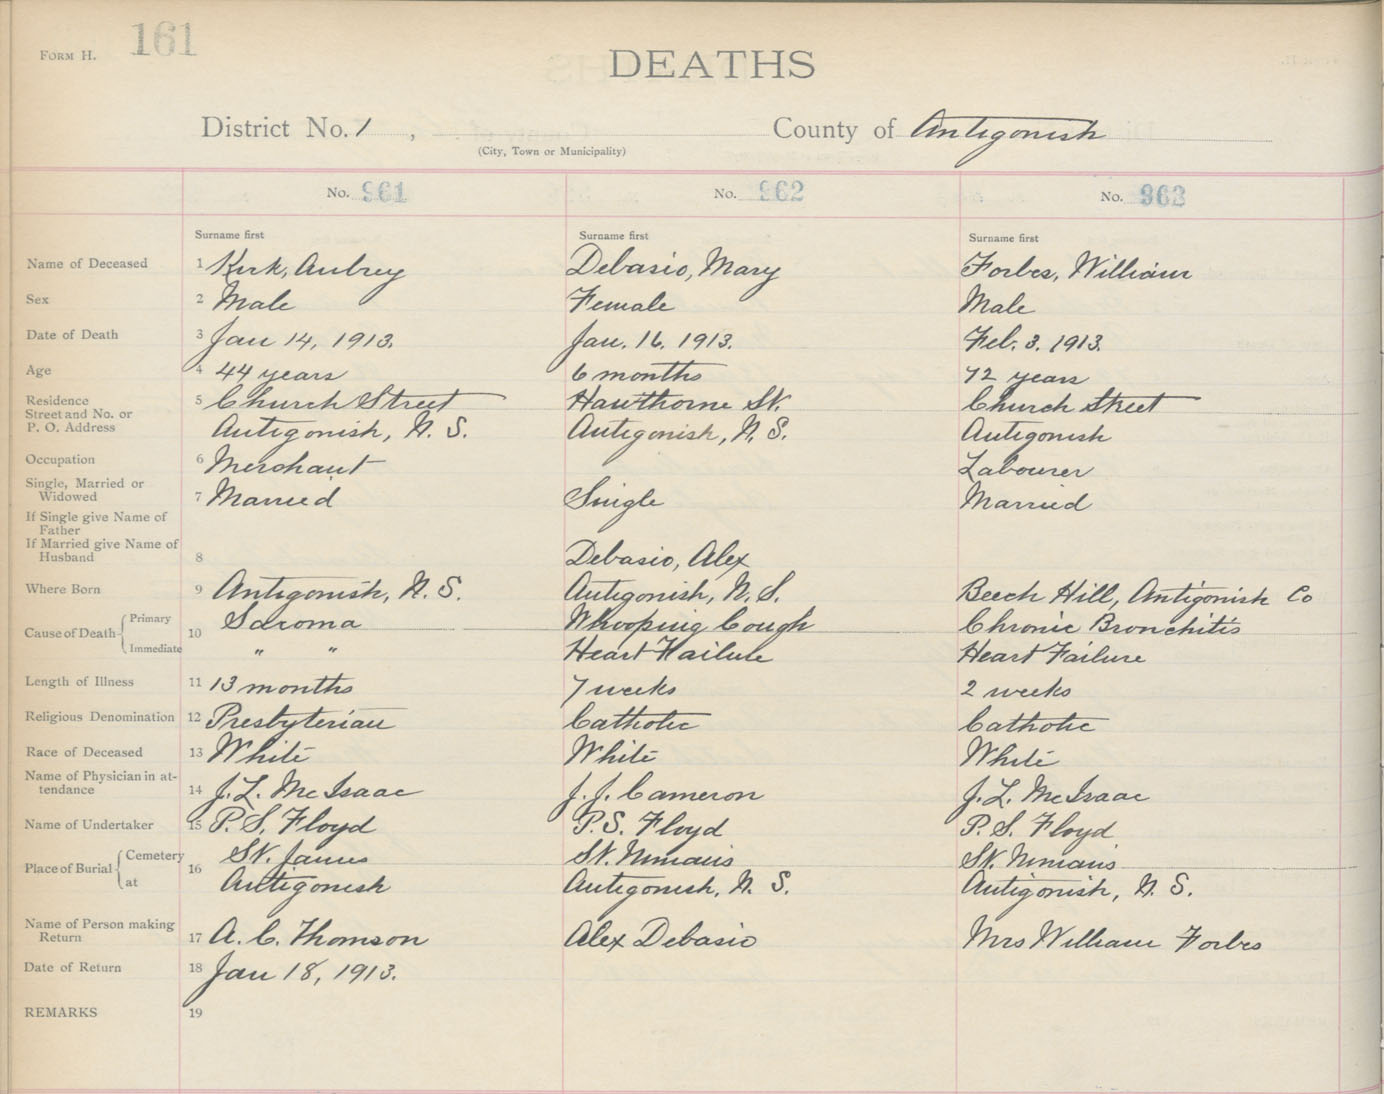 FORM H.
161
DEATHS
District No. 1 ,
County of Antigonish
(City, Town or Municipality)
No. 961
No. 962
No. 963
Surname first
Surname first
Surname first
Name of Deceased 1 Kirk, Aubrey Debasio, Mary Forbes, William
Sex 2 Male Female Male
Date of Death 3 Jan 14, 1913. Jan. 16. 1913. Feb. 3. 1913.
Age 4 44 years 6 months 72 years
Residence 5 Church Street Hawthorne St. Church Street
Street and No. or
P. O. Address Antigonish, N. S. Antigonish, N. S. Antigonish
Occupation 6 Merchant Labourer
Single, Married or
Widowed 7 Married Single Married
If Single give Name of
Father
If Married give Name of
Husband 8 Debasio, Alex
Where Born 9 Antigonish, N. S. Antigonish, N. S. Beech Hill, Antigonish Co
Cause of Death 10 Primary Sacroma Whooping Cough Chronic Bronchitis
Immediate " " Heart Failure Heart Failure
Length of Illness 11 13 months 7 weeks 2 weeks
Religious Denomination 12 Presbyterian Catholic Catholic
Race of Deceased 13 White White White
Name of Physician in at-
tendance 14 J. L. McIsaac J. J. Cameron J. L. McIsaac
Name of Undertaker 15 P. S. Floyd P. S. Floyd P. S. Floyd
Place of Burial 16 Cemetery St. James St. Ninians St. Ninians
at Antigonish Antigonish, N. S. Antigonish, N. S.
Name of Person making
Return 17 A. C. Thomson Alex Debasio Mrs William Forbes
Date of Return 18 Jan 18, 1913.
REMARKS 19